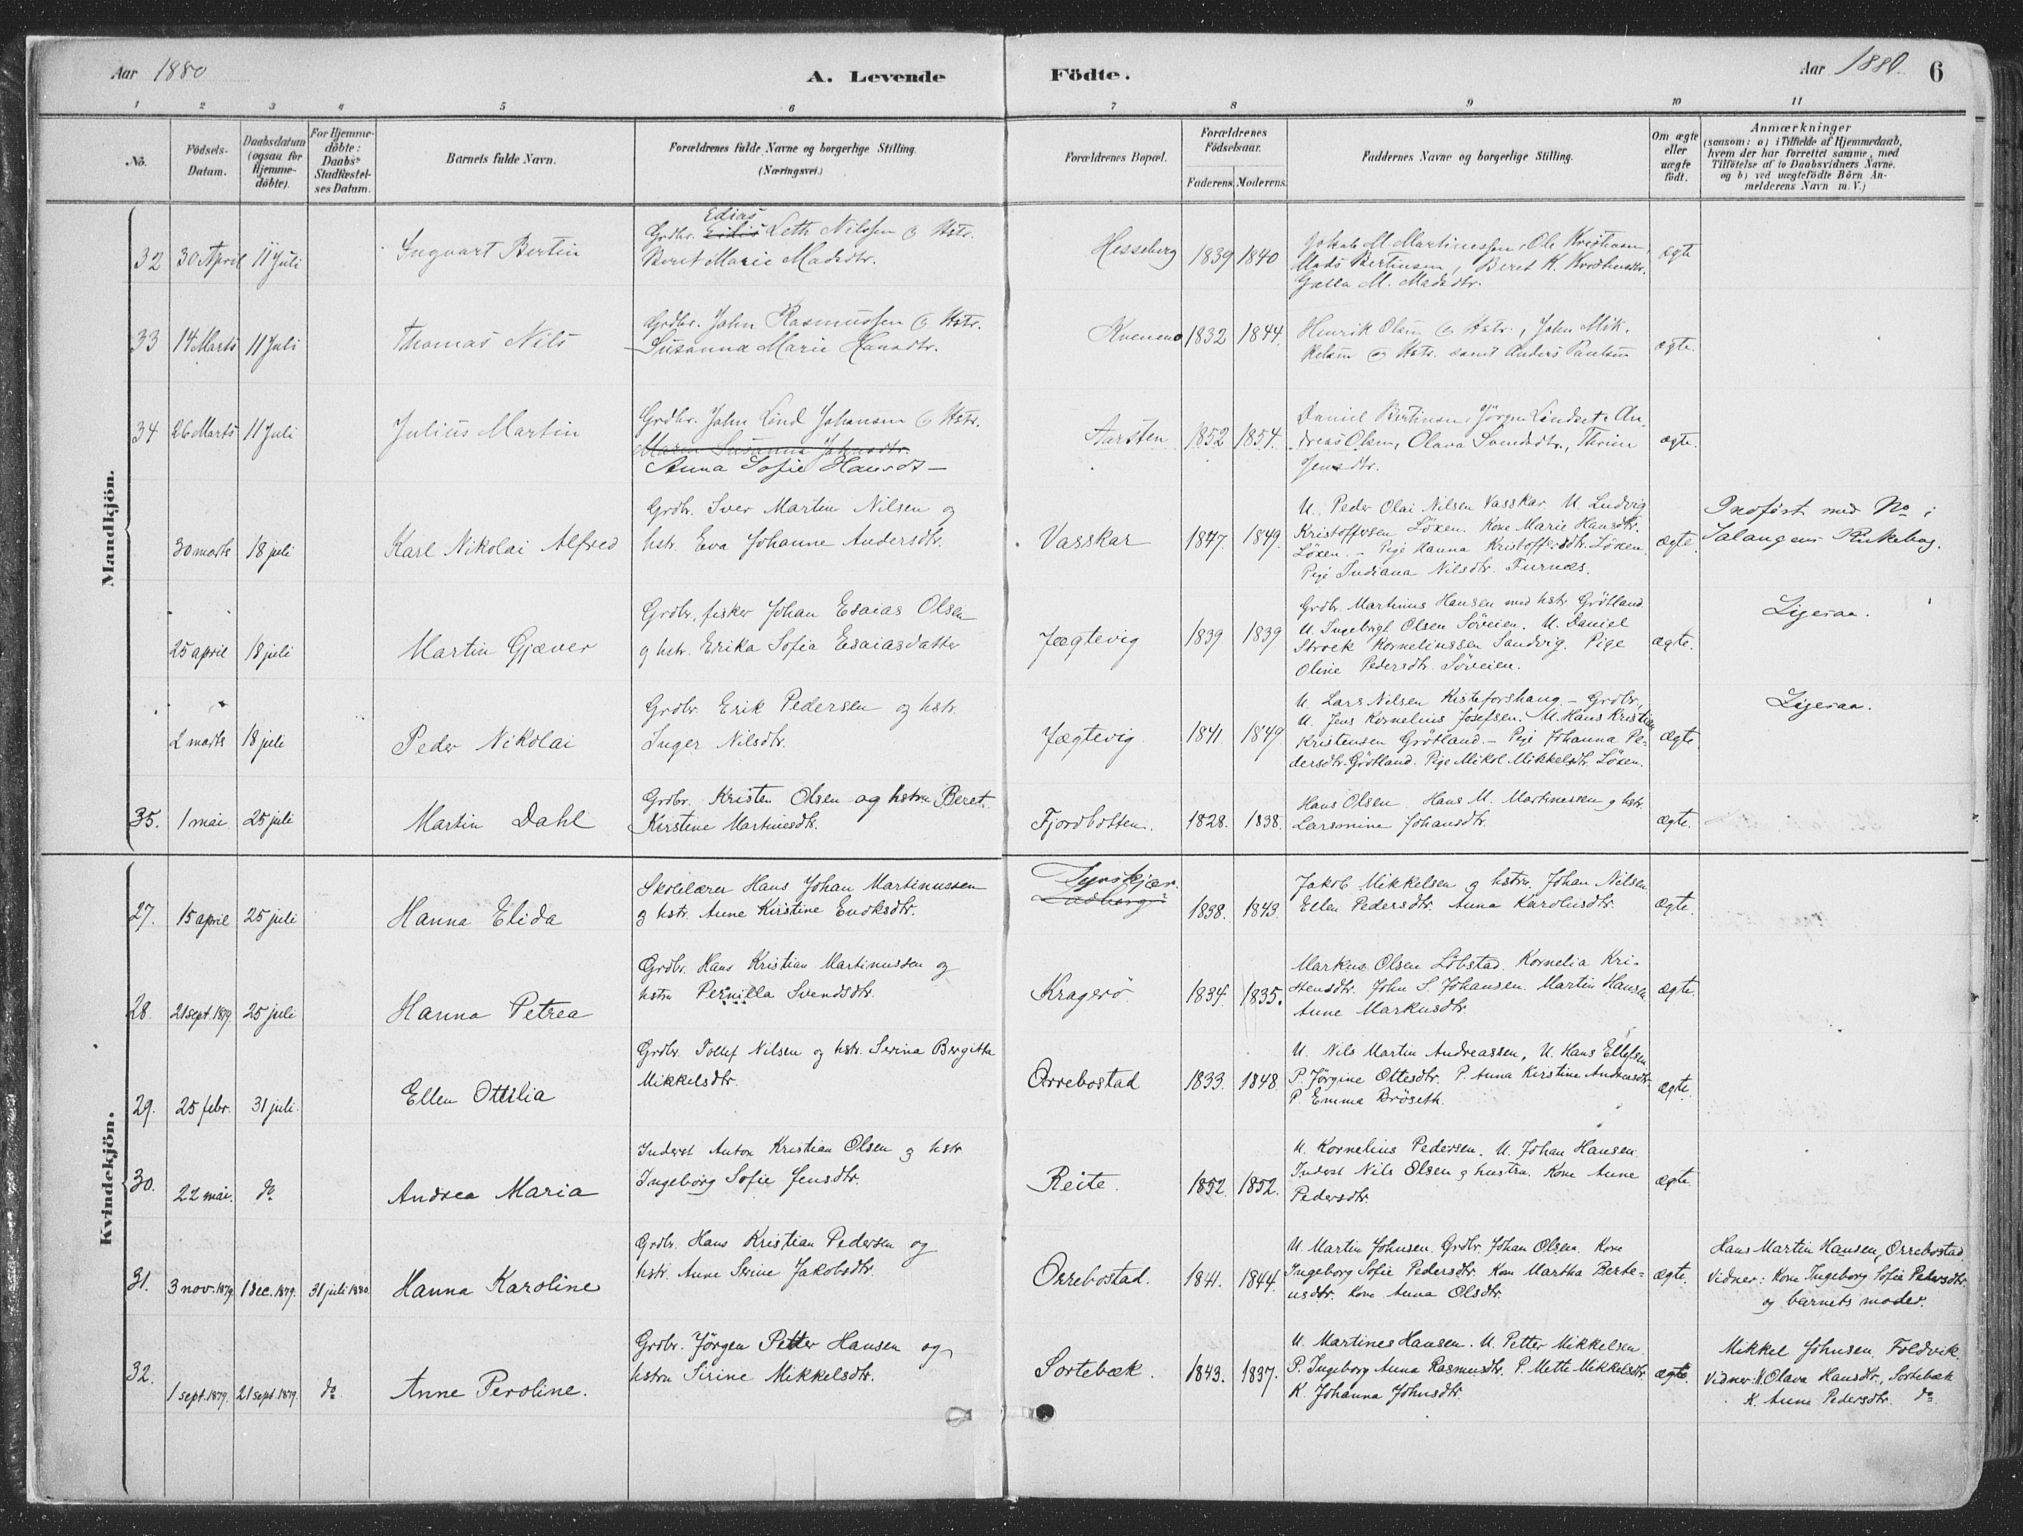 Aar 1880
A. Levende
Födte.
Aar 1880.
6
1 2 3 4 5 6 7 8 9 10 11
No.
Födsels-
Datum.
Daabsdatum
(ogsaa for
Hjemme-
döbte).
For Hjemme-
döbte:
Daabs-
Stadfæstel-
ses Datum.
Barnets fulde Navn.
Forældrenes fulde Navne og borgerlige Stilling.
(Næringsvei.)
Forældrenes Bopæl.
Forældrenes
Födselsaar.
Faderens. Moderens.
Faddernes Navne og borgerlige Stilling.
Om ægte
eller
uægte
födt.
Anmærkninger
(saasom: a) i Tilfælde af Hjemmedaab,
hvem der har forrettet samme, med
Tilföielse af to Daabsvidners Navne.
og b) ved uægtefödte Börn An-
melderens Navn m. V.)
Mandkjön.
32 30 April 11 Juli
Ingvart Bertin
Edias
Grdbr. Leth Nilssen & Hstr.
Beret Marie Madsdtr.
Hesseberg 1839 1840
Jakob M. Martinessen, Ole Kristians
Mads Bertinsen, Beret K.
M. Madsdtr.
ægte
33 14 Marts 11 Juli
Thomas Nils
Grdbr. John Rasmussen & Hstr.
Susanna Marie Hansdtr.
1832 1844.
Henrik Olsen & Hstr., John Mik-
kelsen og Hstr. samt Anders Paulsen
ægte.
34 26 Marts 11 Juli
Julius Martin
Grdbr. John Lind Johansen & Hstr.
Maren Susanna Johnsdtr.
Anna Sofie Hansdt-
Aarsten 1852 1854.
Daniel Bertinsen, Jörgen Lindset, An-
dreas Olsen, Olava Svendsdtr.,
Jensdtr.
ægte.
30 marts 18 juli
Karl Nikolai Alfred
Grdbr. Iver Martin Nilsen og
hstr. Eva Johanne Andersdtr.
Vasskar 1847. 1849.
U. Peder Olai Nilsen Vasskar. U. Ludvig
Kristoffersen Löxen. Kone Marie Hansdtr.
Löxen. - Pige Hanna Kristoffersdtr. Löxen.
Pige Indiana Nilsdtr. Furnæs.
ægte.
Indført med No i
Salangens Kirkebog.
25 april 18 juli
Martin Gjæver
Grdbr, fisker Johan Esaias Olsen
og hstr. Erika Sofia Esaiasdatter
Jægtevig 1839 1839
Grdbr. Martinus Hansen med hstr. Grötland
U. Ingebrigt Olsen Söveien. U. Daniel
Strock Kornelinssen Sandvig. Pige
Oline Pedersdtr. Söveien.
ægte.
Ligesaa.
2 marts 18 juli
Peder Nikolai
Grdbr. Erik Pedersen og hstr.
Inger Nilsdtr.
Jægtevig 1841. 1849
U. Lars Nilsen Kisteforshaug - Grdbr,
U. Jens Kornelius Josefsen. U. Hans Kristian
Kristensen Grötland. - Pige Johanna Pe-
dersdtr. Grötland. Pige Mikol Mikkelsdtr. Löxen.
ægte
Ligesaa.
35. 1 mai 25 juli
Martin Dahl
Grdbr. Kristen Olsen og hstru Beret
Kirstine Martinsdtr.
Fjordbotten. 1828. 1838.
Hans Olsen. Hans M. Martinessen og hstr.
Larsmine Johansdtr.
ægte.
Kvindekjön.
27. 15 april 25 juli
Hanna Elida
Skolelærer Hans Johan Martinussen
og hstr. Anne Kirstine Enoksdtr.
1838. 1843.
Jakob Mikkelsen og hstru. Johan Nilsen
Ellen Pedersdtr. Anna Karolusdtr.
ægte.
28. 21 sept. 1879. 25 juli
Hanna Petrea
Grdbr. Hans Kristian Martinussen og
hstru Pernilla Svendsdtr.
Kragerö. 1834. 1835.
Markus Olsen Löbstad. Kornelia Kri-
stensdtr. John S. Johansen. Martin Hansen
Anne Markusdtr.
ægte.
29. 25 febr. 31 juli.
Ellen Ottilia
Grdbr. Tollef Nilsen og hstr. Serina Bergitta
Mikkelsdtr.
Orrebostad 1833. 1848.
U. Nils Martin Andreassen, U. Hans Ellefsen
P. Jörgine Ottesdtr. P. Anna Kirstine Andersdtr.
P. Emma Bröseth.
ægte.
30. 22 mai. do
Andrea Maria
Inderst Anton Kristian Olsen og hstr.
Ingeborg Sofie Jensdtr.
Reite. 1852. 1852.
U. Kornelius Pedersen. U. Johan Hansen.
Inderst Nils Olsen og hustru. Kone Anne
Pedersdtr.
ægte.
31. 3 nov. 1879. 1 dec. 1879. 31 juli 1880.
Hanna Karoline
Grdbr. Hans Kristian Pedersen og
hstr. Anne Serine Jakobsdtr.
Orrebostad. 1841. 1844.
U. Martin Johnsen. Grdbr. Johan Olsen. Kone
Ingeborg Sofie Pedersdtr. Kone Martha Berte-
usdtr. Kone Anna Olsdtr.
ægte.
Hans Martin Hansen, Orrebostad
Vidner: Kone Ingeborg Sofie Pedersdtr.
og barnets moder.
32. 1 sept. 1879. 21 sept. 1879. do
Anne Peroline.
Grdbr. Jörgen Petter Hansen og
hstru Sirine Mikkelsdtr.
Sortebæk. 1843. 1837.
U. Martines Hansen. U. Petter Mikkelsen.
P. Ingeborg Anna Rasmusdtr. P. Mette Mikkelsdtr.
K. Johanna Johnsdtr.
ægte.
Mikkel Johnsen, Foldvik
Vidner: K. Olava Hansdtr., Sortebæk
K. Anne Pedersdtr. do